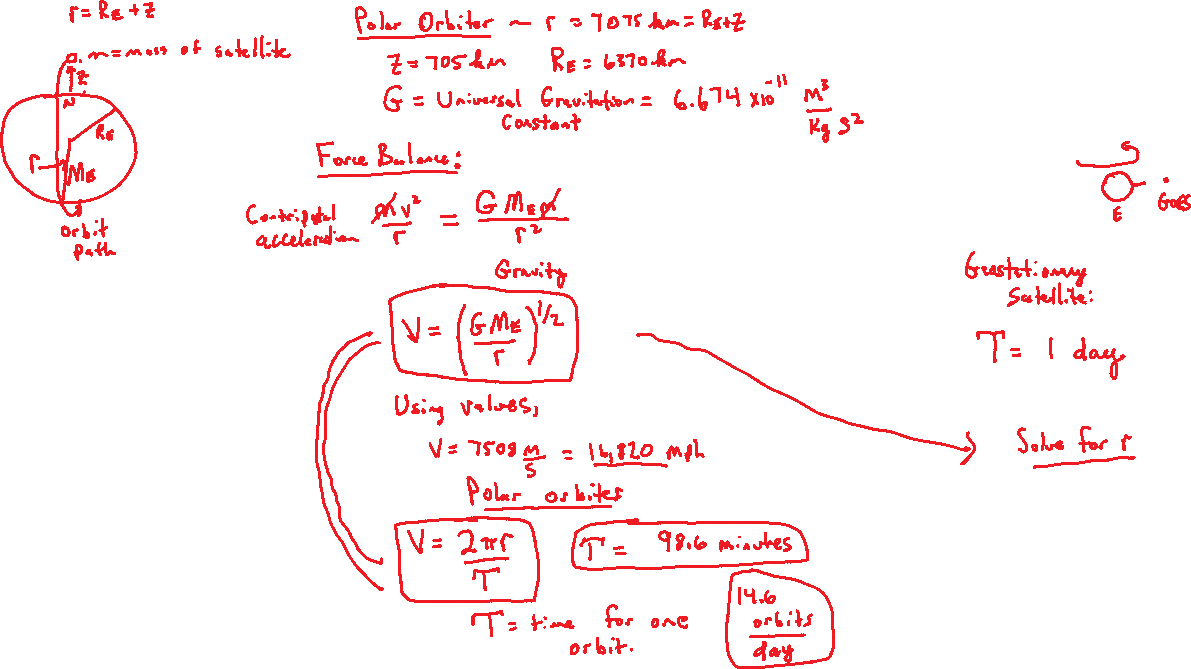 r = RE + Z
m = mass of satellite
Z
N
RE
r
ME
orbit
path
Polar Orbiter ~ r = 7075 km = RE+Z
Z = 705 km RE = 6370 km
G = Universal Gravitation = 6.674 x10^-11 M^3/Kg S^2
Constant
Force Balance:
Centripetal
acceleration
mv^2/r = G ME m/r^2
Gravity
V = (G ME/r)^1/2
Using values,
V = 7508 M/S = 16,820 mph
Polar orbites
V = 2πr/T
T = 98.6 minutes
T = time for one
orbit.
14.6
orbits
day
E
GOES
Geostationary
Satellite:
T = 1 day
Solve for r